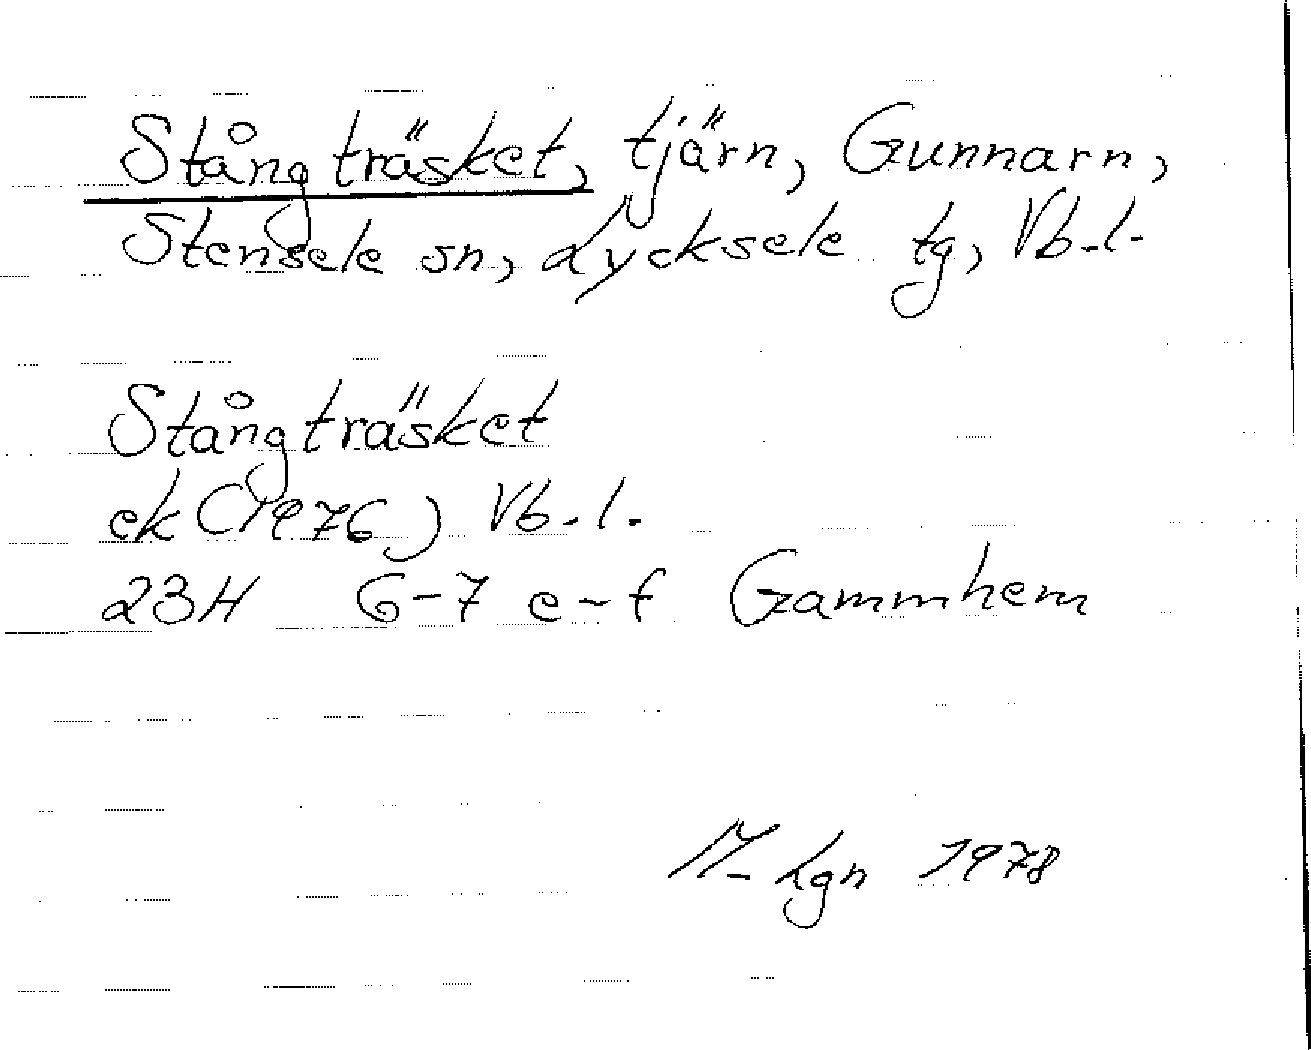 Stångträsket, tjärn, Gunnarn,
Stensele sn, Lycksele tg, Vb.l.
Stångträsket
ek (1976) Vb.l.
23H 6-7 e-f Gammhem
M. Lgn 1978